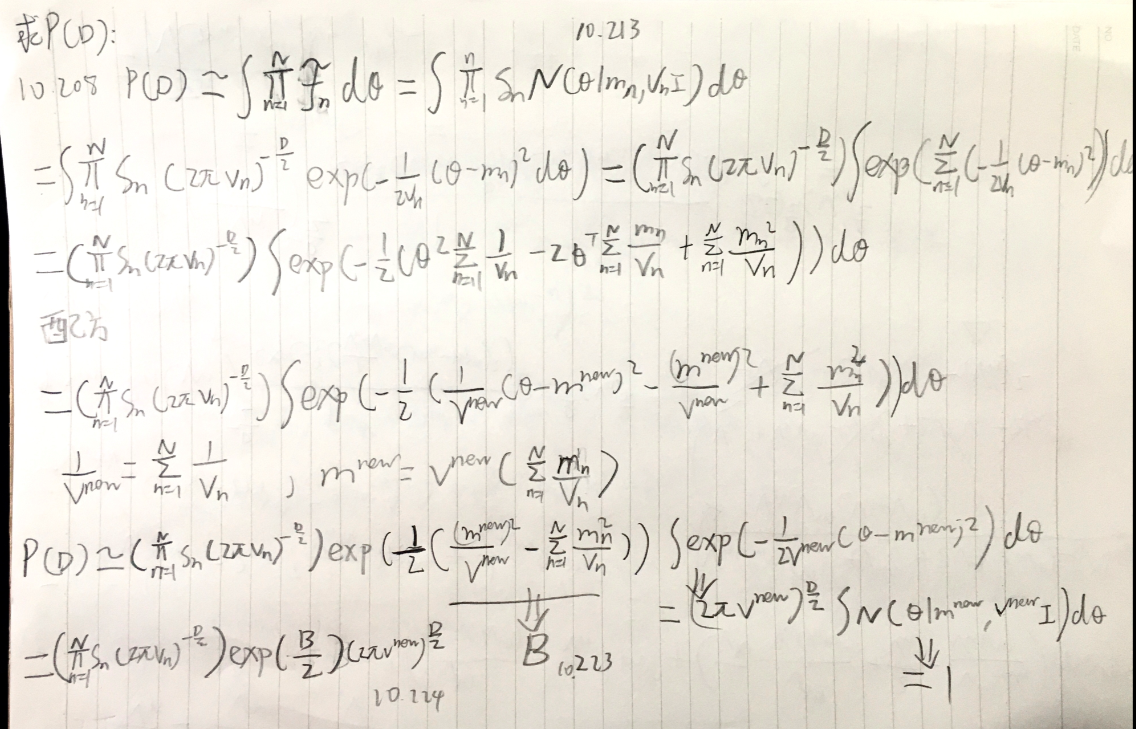 求P(D):
10.213
10.208 P(D) ≃ ∫ ∏_{n=1}^{N} f̃_n dθ = ∫ ∏_{n=1}^{n} S_n N(θ|m_n, V_n I) dθ
= ∫ ∏_{n=1}^{N} S_n (2πV_n)^{-D/2} exp(-1/(2V_n) (θ-m_n)^2 dθ) = (∏_{n=1}^{N} S_n (2πV_n)^{-D/2}) ∫ exp(∑_{n=1}^{N} (-1/(2V_n) (θ-m_n)^2)) dθ
= (∏_{n=1}^{N} S_n (2πV_n)^{-D/2}) ∫ exp(-1/2 (θ^2 ∑_{n=1}^{N} 1/V_n - 2θ^T ∑_{n=1}^{N} m_n/V_n + ∑_{n=1}^{N} m_n^2/V_n)) dθ
配方
= (∏_{n=1}^{N} S_n (2πV_n)^{-D/2}) ∫ exp(-1/2 (1/V^{new} (θ-m^{new})^2 - (m^{new})^2/V^{new} + ∑_{n=1}^{N} m_n^2/V_n)) dθ
1/V^{new} = ∑_{n=1}^{N} 1/V_n , m^{new} = V^{new} (∑_{n=1}^{N} m_n/V_n)
P(D) ≃ (∏_{n=1}^{N} S_n (2πV_n)^{-D/2}) exp(1/2 ((m^{new})^2/V^{new} - ∑_{n=1}^{N} m_n^2/V_n)) ∫ exp(-1/(2V^{new}) (θ-m^{new})^2) dθ
⇓ ⇓
= (2πV^{new})^{D/2} ∫ N(θ|m^{new}, V^{new} I) dθ
= (∏_{n=1}^{N} S_n (2πV_n)^{-D/2}) exp(B/2) (2πV^{new})^{D/2}
B 10.223
⇓
= 1
10.224